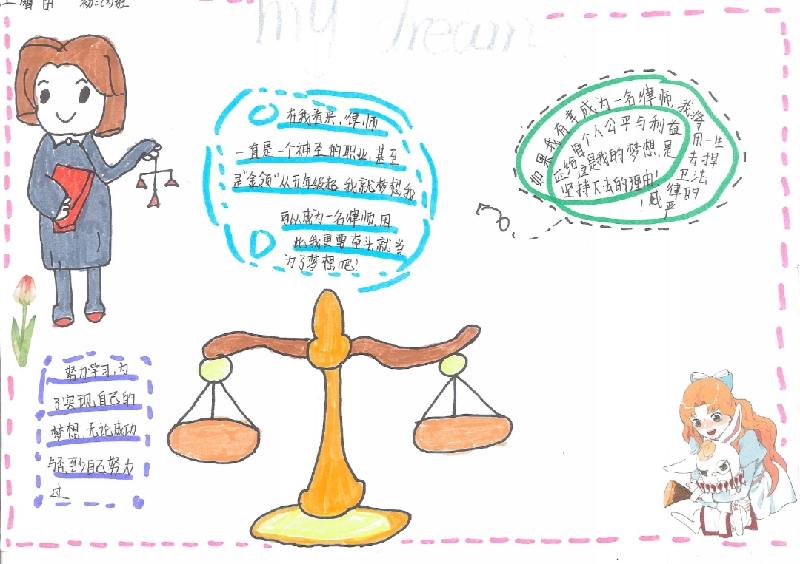 my dream
在我看来,律师
一直是一个神圣的职业,甚至
是"金领"从五年级起 我就梦想我
可以成为一名律师,因
此我更要卓头就当
为了梦想吧!
如果我有幸成为一名律师,我将用一生去捍卫法律的威严!
给每个人公平与利益
这是我的梦想,是
坚持下去的理由!
努力学习,为
了实现自己的
梦想 无论成功
与否,至少自己努力
过